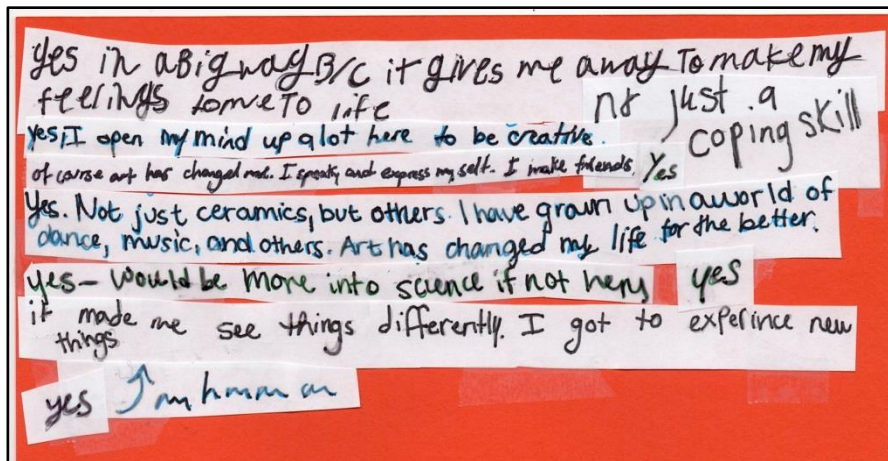 yes in a Big way B/C it gives me away To make my
feelings come To life
no just a
coping skill
yes, I open my mind up alot here to be creative.
of corse art has changed me. I speak, and express my self. I make friends.
Yes
Yes. Not just ceramics, but others. I have grown up in a world of
dance, music, and others. Art has changed my life for the better.
yes - would be more into science if not here
yes
it made me see things differently. I got to experince new
things
yes
mhmm